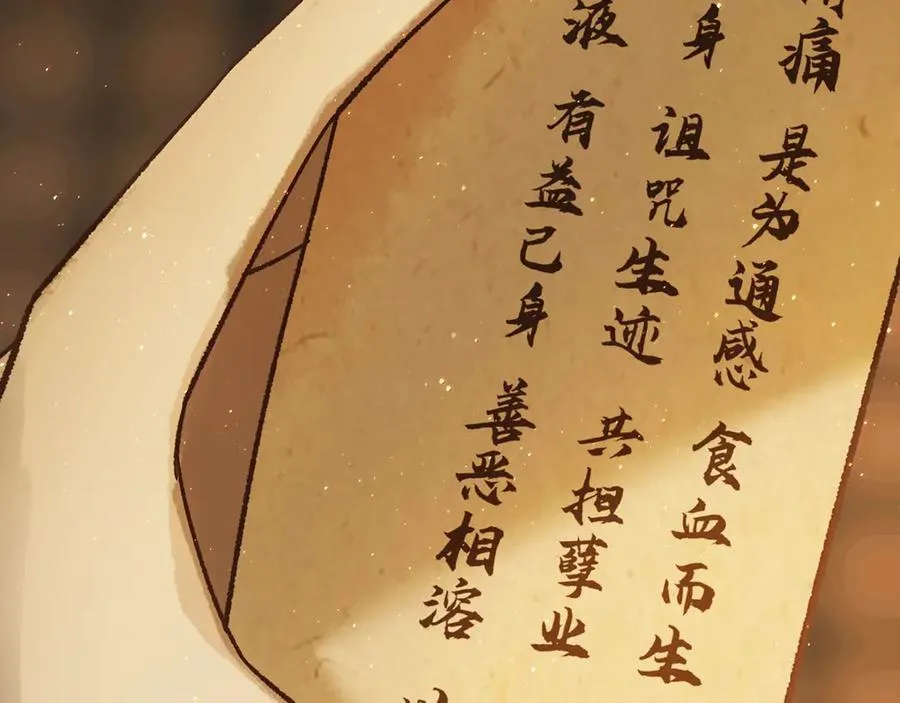 痛 是为通感 食血而生
身 诅咒生迹 共担孽业
液 有益己身 善恶相溶